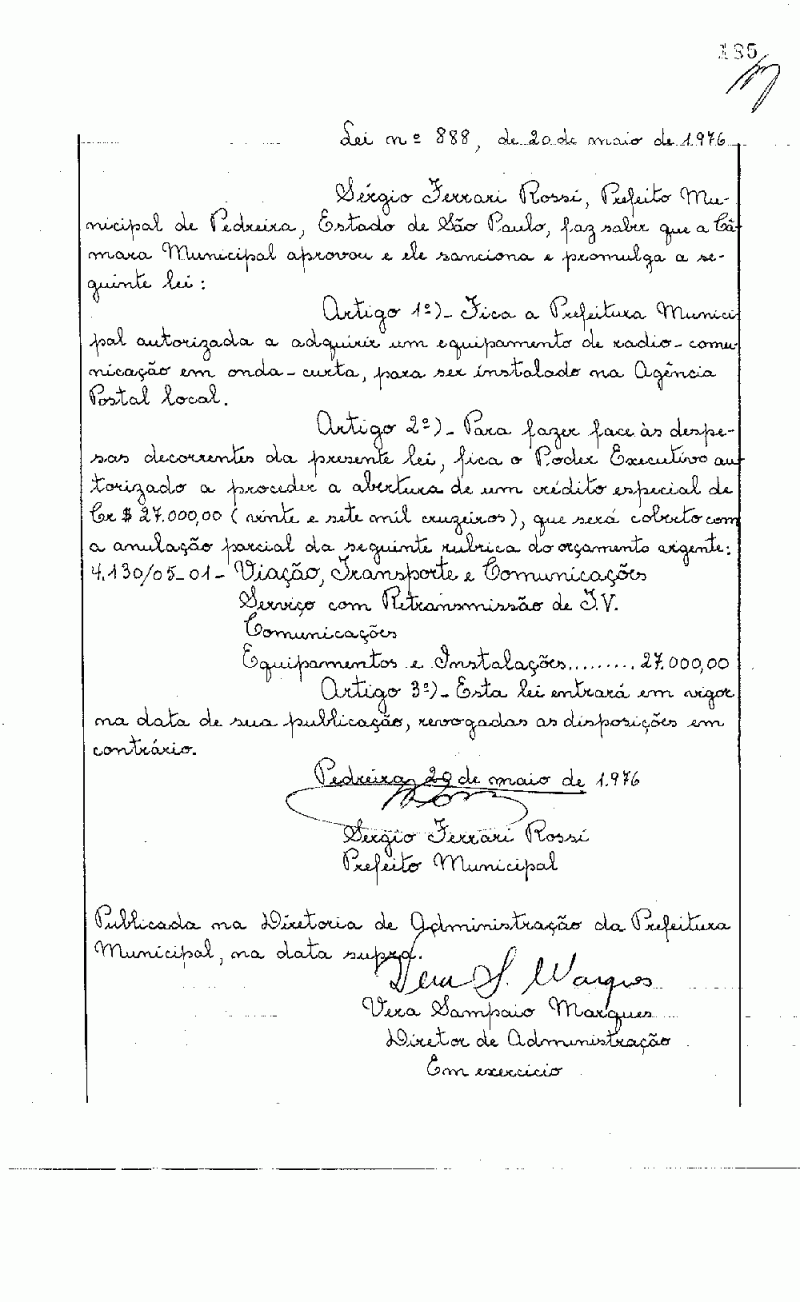 185
Lei nº 888, de 20 de maio de 1.976
Sérgio Ferrari Rossi, Prefeito Mu-
nicipal de Pedreira, Estado de São Paulo, faz saber que a Câ-
mara Municipal aprovou e ele sanciona e promulga a se-
guinte lei:
Artigo 1º)- Fica a Prefeitura Munici
pal autorizada a adquirir um equipamento de radio-comu
nicação em onda-curta, para ser instalado na Agência
Postal local.
Artigo 2º)- Para fazer face às despe-
sas decorrentes da presente lei, fica o Poder Executivo au
torizado a proceder a abertura de um crédito especial de
Cr$ 27.000,00 (vinte e sete mil cruzeiros), que será coberto com
a anulação parcial da seguinte rubrica do orçamento vigente:
4.130/05-01- Viação, Transporte e Comunicações
Serviço com Retransmissão de T.V.
Comunicações
Equipamentos e Instalações......... 27.000,00
Artigo 3º)- Esta lei entrará em vigor
na data de sua publicação, revogadas as disposições em
contrário.
Pedreira, 20 de maio de 1.976
Sérgio Ferrari Rossi
Prefeito Municipal
Publicada na Diretoria de Administração da Prefeitura
Municipal, na data supra.
Vera S. Marques
Vera Sampaio Marques
Diretor de Administração
Em exercicio